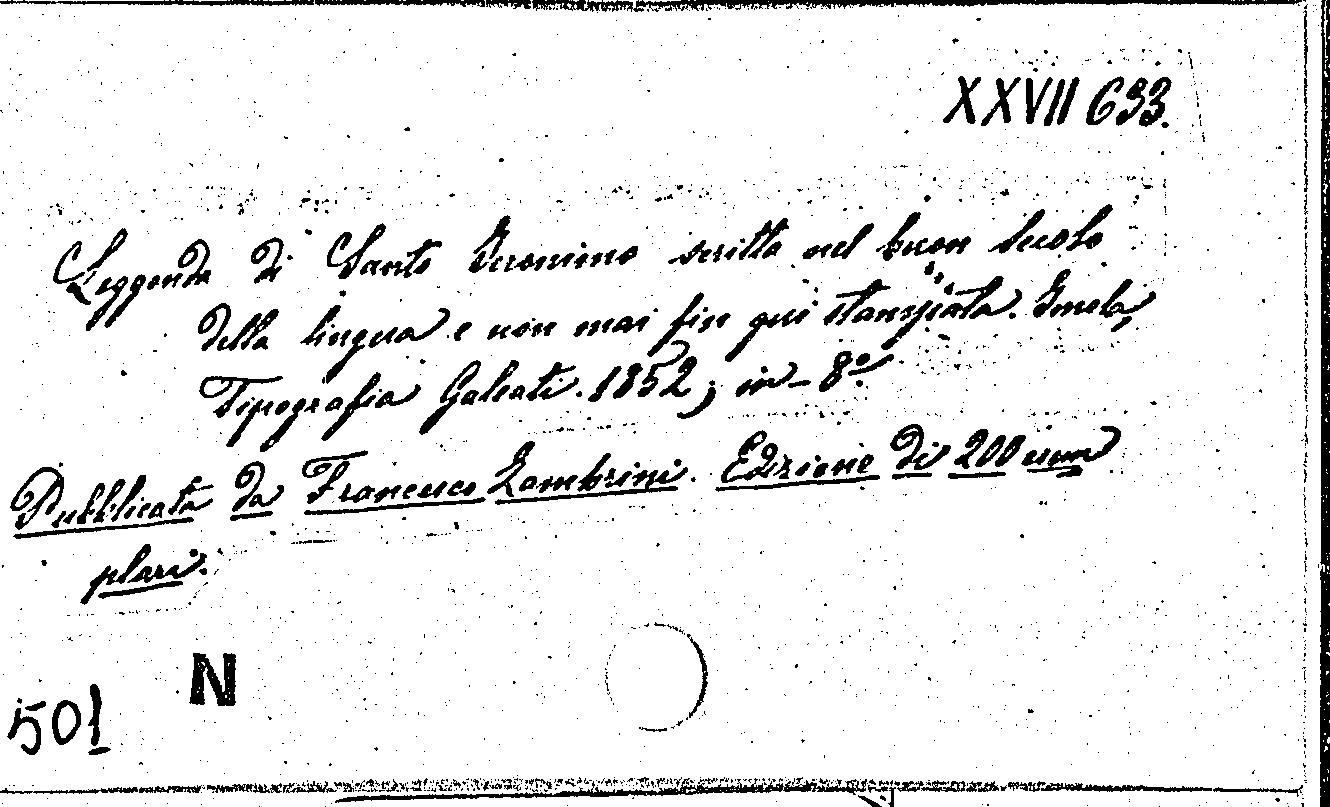 XXVII 633.
Leggenda di Santo Jeronimo scritta nel buon secolo
della lingua e non mai fin qui stampata. Imola,
Tipografia Galeati. 1852; in-8º.
Pubblicata da Francesco Zambrini. Edizione di 200 esem
plari.
N
501